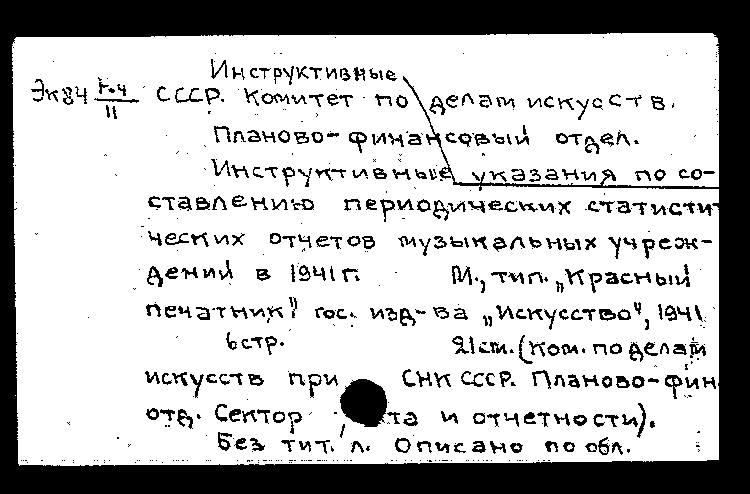 Инструктивные
Эк84 СССР. Комитет по делам искусств.
II
Планово-финансовый отдел.
Инструктивные указания по со-
ставлению периодических статисти
ческих отчетов музыкальных учреж-
дений в 1941 г. М., тип. „Красный
печатник" гос. изд-ва „Искусство", 1941
6 стр. 21 см. (Ком. по делам
искусств при СНК СССР. Планово-фин.
отд. Сектор та и отчетности).
Без тит. л. Описано по обл.